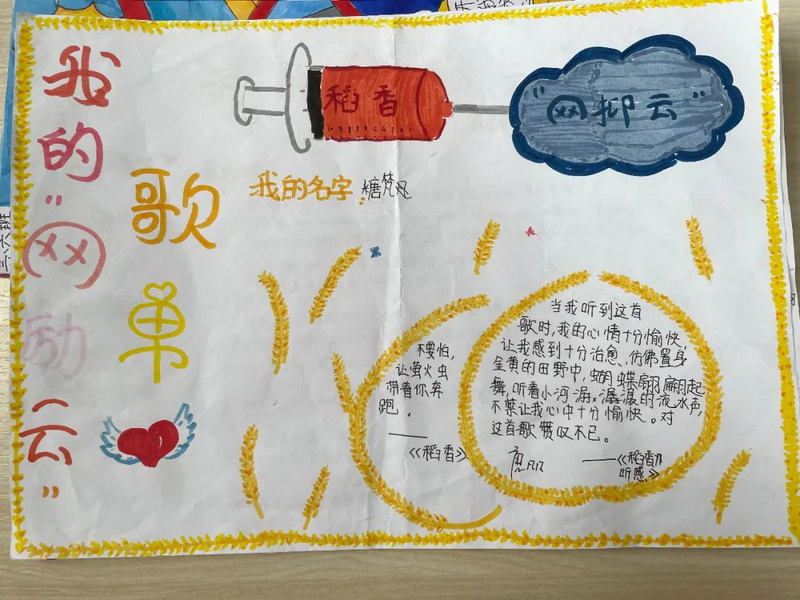 我的"网励云"
歌单
稻香
"网抑云"
我的名字:糖梵迅
不要怕,
让萤火虫
带着你奔
跑。
——
《稻香》
当我听到这首
歌时,我的心情十分愉快、
让我感到十分治愈,仿佛置身
金黄的田野中,蝴蝶翩翩起
舞,听着小河潺潺的流水声,
不禁让我心中十分愉快。对
这首歌赞叹不已。
——《稻香》
听感